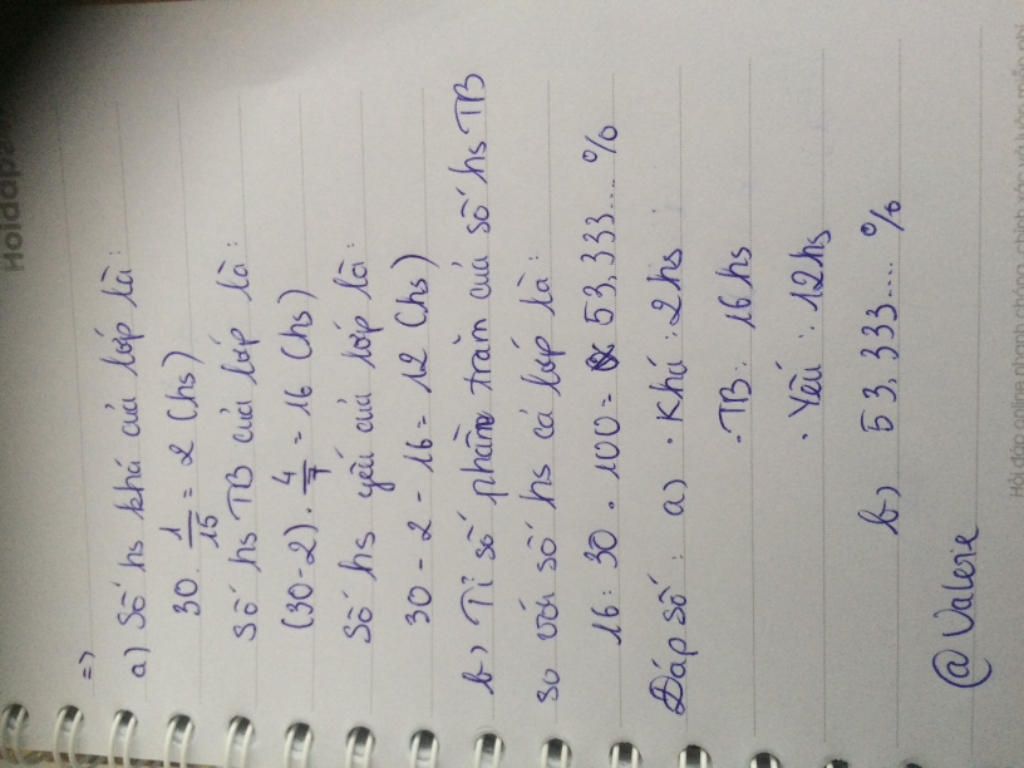 Hoidap
=>
a) Số hs khá của lớp là:
30. 1/15 = 2 (hs)
Số hs TB của lớp là:
(30-2). 4/7 = 16 (hs)
Số hs yếu của lớp là:
30 - 2 - 16 = 12 (hs)
b) Tỉ số phần trăm của số hs TB
so với số hs cả lớp là:
16 : 30 . 100 = 53,333.... %
Đáp số: a) · Khá : 2hs
· TB : 16 hs
· Yếu : 12hs
b) 53,333.... %
@Valerie
Hỏi đáp online nhanh chóng, chính xác và luôn miễn phí